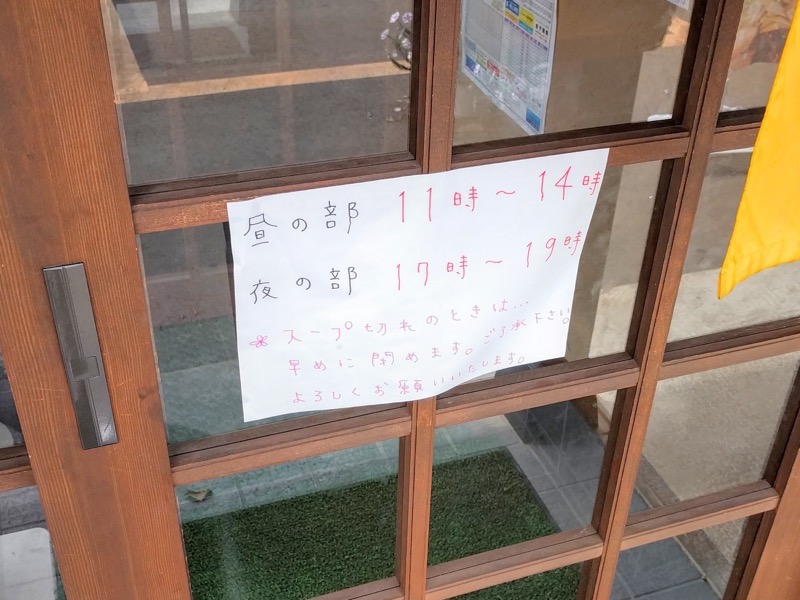 昼の部 11時～14時
夜の部 17時～19時
スープ切れのときは...
早めに閉めます。ご了承下さい。
よろしくお願いいたします。